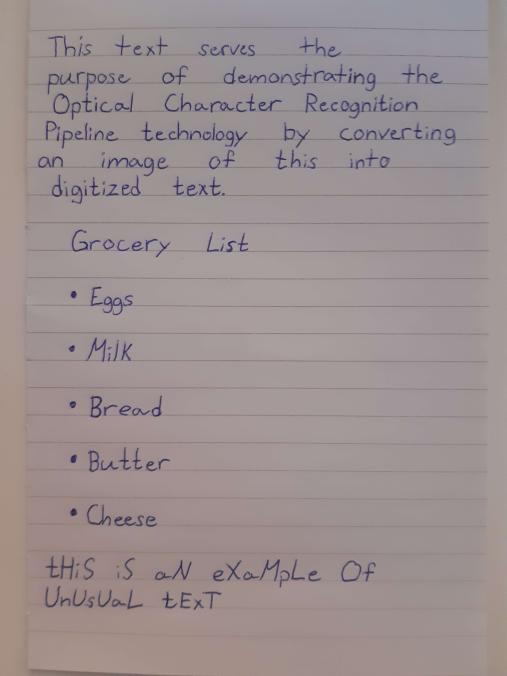 This text serves the
purpose of demonstrating the
Optical Character Recognition
Pipeline technology by converting
an image of this into
digitized text.
Grocery List
• Eggs
• Milk
• Bread
• Butter
• Cheese
tHiS iS aN eXaMpLe Of
UnUsUaL tExT